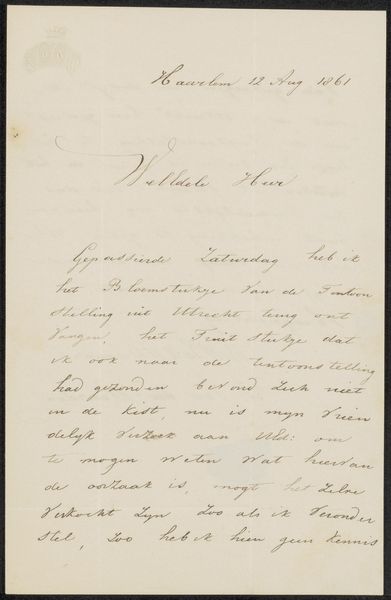 Haarlem 12 Aug 1861
WelEdele Heer
Gepasseerde Zaturdag heb ik
het Bloemstukje van de Tentoon
stelling uit Utrecht terug ont
vangen, het Fruit stukje dat
ik ook naar de tentoonstelling
had gezonden bevond zich niet
in de kist, nu is mijn Vrien
delijk Verzoek aan UEd: om
te mogen weten wat hiervan
de oorzaak is, mogt het zelve
Verkocht zijn zoo als ik Veronder
stel, zoo heb ik hier geen kennis